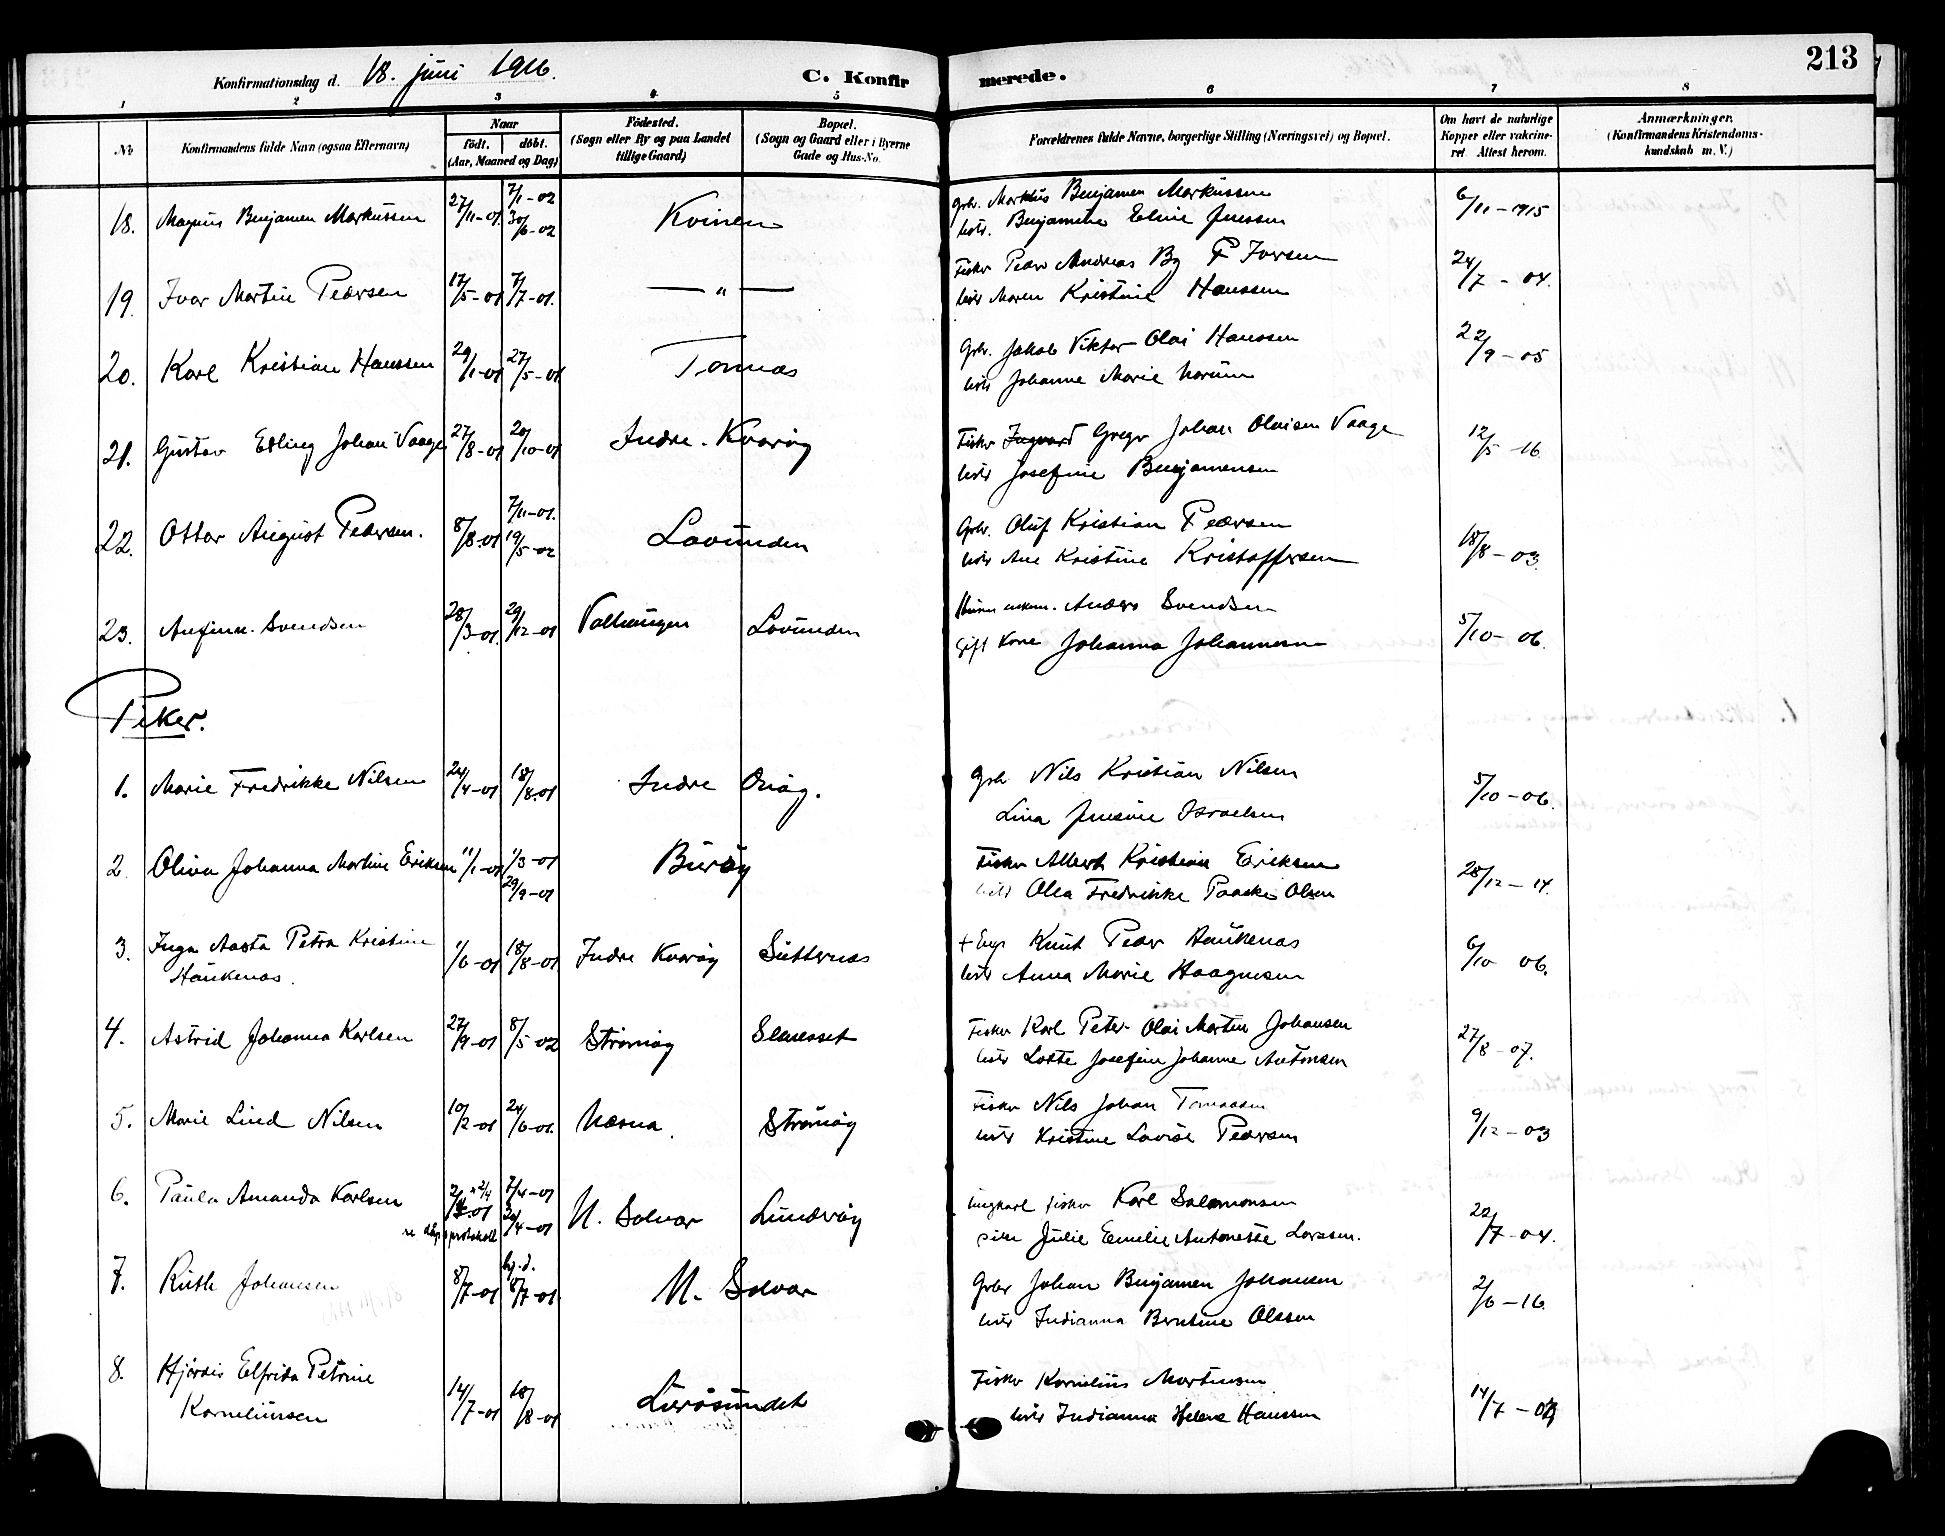 213
Konfirmationsdag d. 18. juni 1916.
C. Konfirmerede.
1 2 3 4 5 6 7 8
No
Konfirmandens fulde Navn (ogsaa Efternavn)
Naar
født. døbt.
(Aar, Maaned og Dag)
Fødested.
(Sogn eller By og paa Landet
tillige Gaard)
Bopæl.
(Sogn og Gaard eller i Byerne
Gade og Hus-No.
Forældrenes fulde Navne, borgerlige Stilling (Næringsvei) og Bopæl.
Om havt de naturlige
Kopper eller vakcine-
ret. Attest herom.
Anmærkninger.
(Konfirmandens Kristendoms-
kundskab m. V.)
18. Magnus Benjamen Markussen 27/11-01. 7/1-02 30/6-02 Kvinen Gbr. Markus Benjamen Markussen 6/11-1915
hstr. Benjamine Eline Jenssen
19. Ivar Martin Pedersen 17/5-01 7/7-01. — " — Fisker Peder Andreas By P Iversen 24/7-04.
hstr Maren Kristine Hanssen
20. Karl Kristian Hanssen 29/1-01 27/5-01 Tonnes Gbr. Jakob Viktor Olai Hanssen 22/9-05
hstr Johanne Marie
21. Gustav Edling Johan Vaage 27/8-01 20/10-01 Indre. Kvarøy Fisker Gregr Johan Olaisen Vaage 12/5 16.
hstr Josefine Benjamensen
22. Ottar August Pedersen. 8/8-01 7/11-01. 19/5-02 Lovunden Gbr. Oluf Kristian Pedersen 18/8-03.
hstr Ane Kristine Kristoffersen
23. Anfinn. Svendsen 28/3-01. 29/12-01 Valhaugen Lovunden Anders Svendsen 5/10-06.
gift Kone Johanna Johannesen
Piker.
1. Marie Fredrikke Nilsen 24/4-01 18/8.01 Indre Onøy. Gbr Nils Kristian Nilsen 5/10-06.
Lina Jensine Israelsen
2. Oliva Johanna Martine Eriksen 11/1-01 1/3-01 29/9-01 Burøy Fisker Albert Kristian Eriksen 28/12-14.
hstr Olea Fredrikke Paaske Olsen
3. Inga Aasta Petra Kristine 1/6-01 18/8-01 Indre Kvarøy Sütternes + Knut Peder Haukenas 6/10 06.
Haukenas. hstr Anna Marie Haagensen
4. Astrid Johanna Karlsen 27/9-01 8/5-02 Strømøy Slenesset Fisker Karl Peter Olai Martin Johansen 27/8-07.
hstr Lotte Josefine Johanne Antonsen
5. Marie Lind Nilsen 10/2-01 24/6-01. Næsna. Strømøy Fisker Nils Johan Tomassen 9/12-03
hstr Kristine Lovise Pedersen
6. Paula Amanda Karlsen 2/3-01 7/4-01 N. Solvær Lundøy ungkarl fisker Karl Salamonsen 22/7-04.
protokoll pike Julie Emilie Antonette Larssen.
7. Ruth Johansen 8/7-01 hj. d. 8/7-01. N. Solvær Gbr Johan Benjamen Johansen 2/6-16.
hstr Indianna Berntine Olssen
8. Hjørdis Elfrida Petrine 14/7-01 18/8-01 Lurøsundet Fisker Kornelius Martinsen 14/7-0
Korneliussen hstr Indianna Helene Hanssen